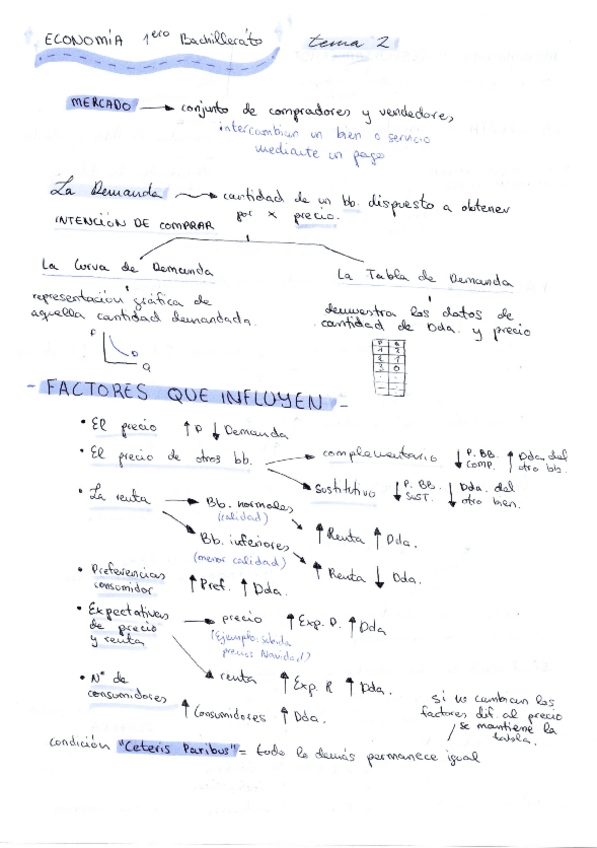 ECONOMÍA 1ero Bachillerato tema 2
MERCADO → conjunto de compradores y vendedores,
intercambian un bien o servicio
mediante un pago
La Demanda → cantidad de un bb. dispuesto a obtener
por x precio.
INTENCIÓN DE COMPRAR
La Curva de Demanda
representación gráfica de
aquella cantidad demandada.
P
D
Q
La Tabla de Demanda
demuestra los datos de
cantidad de Dda. y precio
P Q
1 2
2 1
3 0
- FACTORES QUE INFLUYEN -
• El precio ↑ P ↓ Demanda
• El precio de otros bb. → complementario ↓ P. BB. COMP. ↑ Dda del otro bb.
→ sustitutivo ↓ P. BB. SUST. ↓ Dda. del otro bien.
• La renta → Bb. normales (calidad) → ↑ Renta ↑ Dda.
→ Bb. inferiores (menor calidad) → ↑ Renta ↓ Dda.
• Preferencias
consumidor ↑ Pref. ↑ Dda.
• Expectativas
de precio
y renta
→ precio ↑ Exp. P. ↑ Dda
(Ejemplo: subida
precios Navidad!)
→ renta ↑ Exp. R ↑ Dda.
• Nº de
consumidores ↑ Consumidores ↑ Dda.
si no cambian los
factores dif. al precio
se mantiene la
tabla.
condición "Ceteris Paribus" = todo lo demás permanece igual